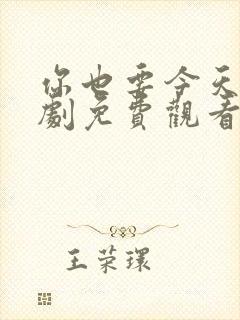 你也要今天
劇免費觀看
王荣環